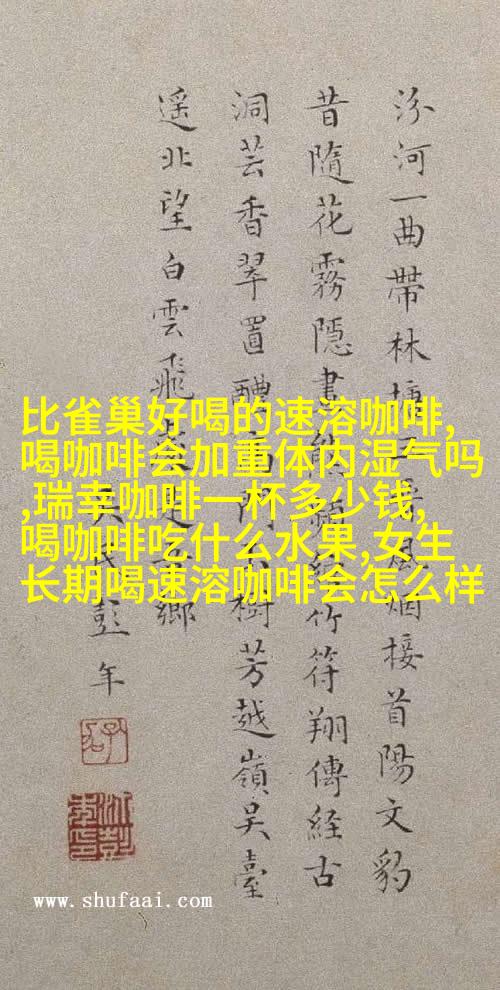 汾河一曲帶林 風烟接首陽文豹
昔隨花霧隱 竹符翔傳経古
洞芸香翠置醴 樹芳越嶺吴臺
遥北望白雲飛 鄉
彭年
比雀巢好喝的速溶咖啡,
喝咖啡会加重体内湿气吗
,瑞幸咖啡一杯多少钱,
喝咖啡吃什么水果,女生
长期喝速溶咖啡会怎么样
www.shufaai.com